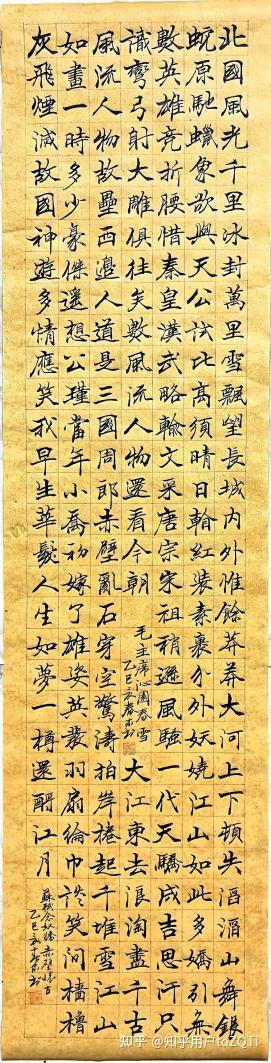 北國風光千里冰封萬里雪飄望長城内外惟餘莽莽大河上下頓失滔滔山舞銀
蛇原馳蠟象欲與天公試比高須晴日紅裝素裹分外妖嬈江山如此多嬌引無
數英雄竞折腰惜秦皇漢武略輸文采唐宗宋祖稍遜風騷一代天驕成吉思汗只
識彎弓射大雕俱往矣數風流人物還看今朝
毛主席沁園春雪
乙巳春書
大江東去浪淘盡千古
風流人物故壘西邊人道是三國周郎赤壁亂石穿空驚濤拍岸捲起千堆雪江山
如畫一時多少豪傑遥想公瑾當年小喬初嫁了雄姿英發羽扇綸巾談笑间檣櫓
灰飛煙滅故國神遊多情應笑我早生華髮人生如夢一樽還酹江月
蘇軾念奴嬌赤壁懷古
乙巳書
知乎 @知乎用户toZQTi